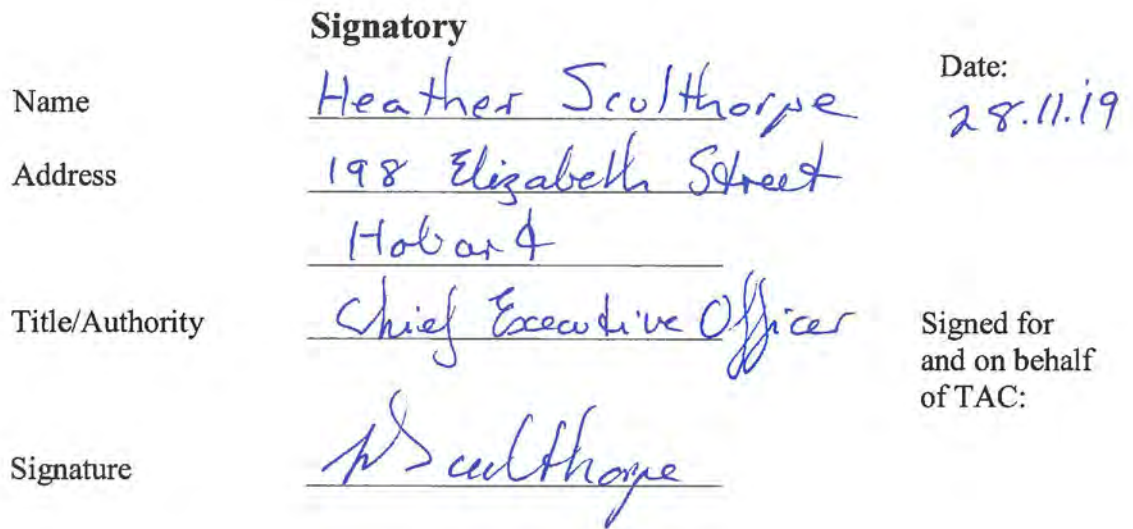 Signatory
Name Heather Sculthorpe
Date:
28.11.19
Address 198 Elizabeth Street
Hobart
Title/Authority Chief Executive Officer
Signed for
and on behalf
of TAC:
Signature HSculthorpe